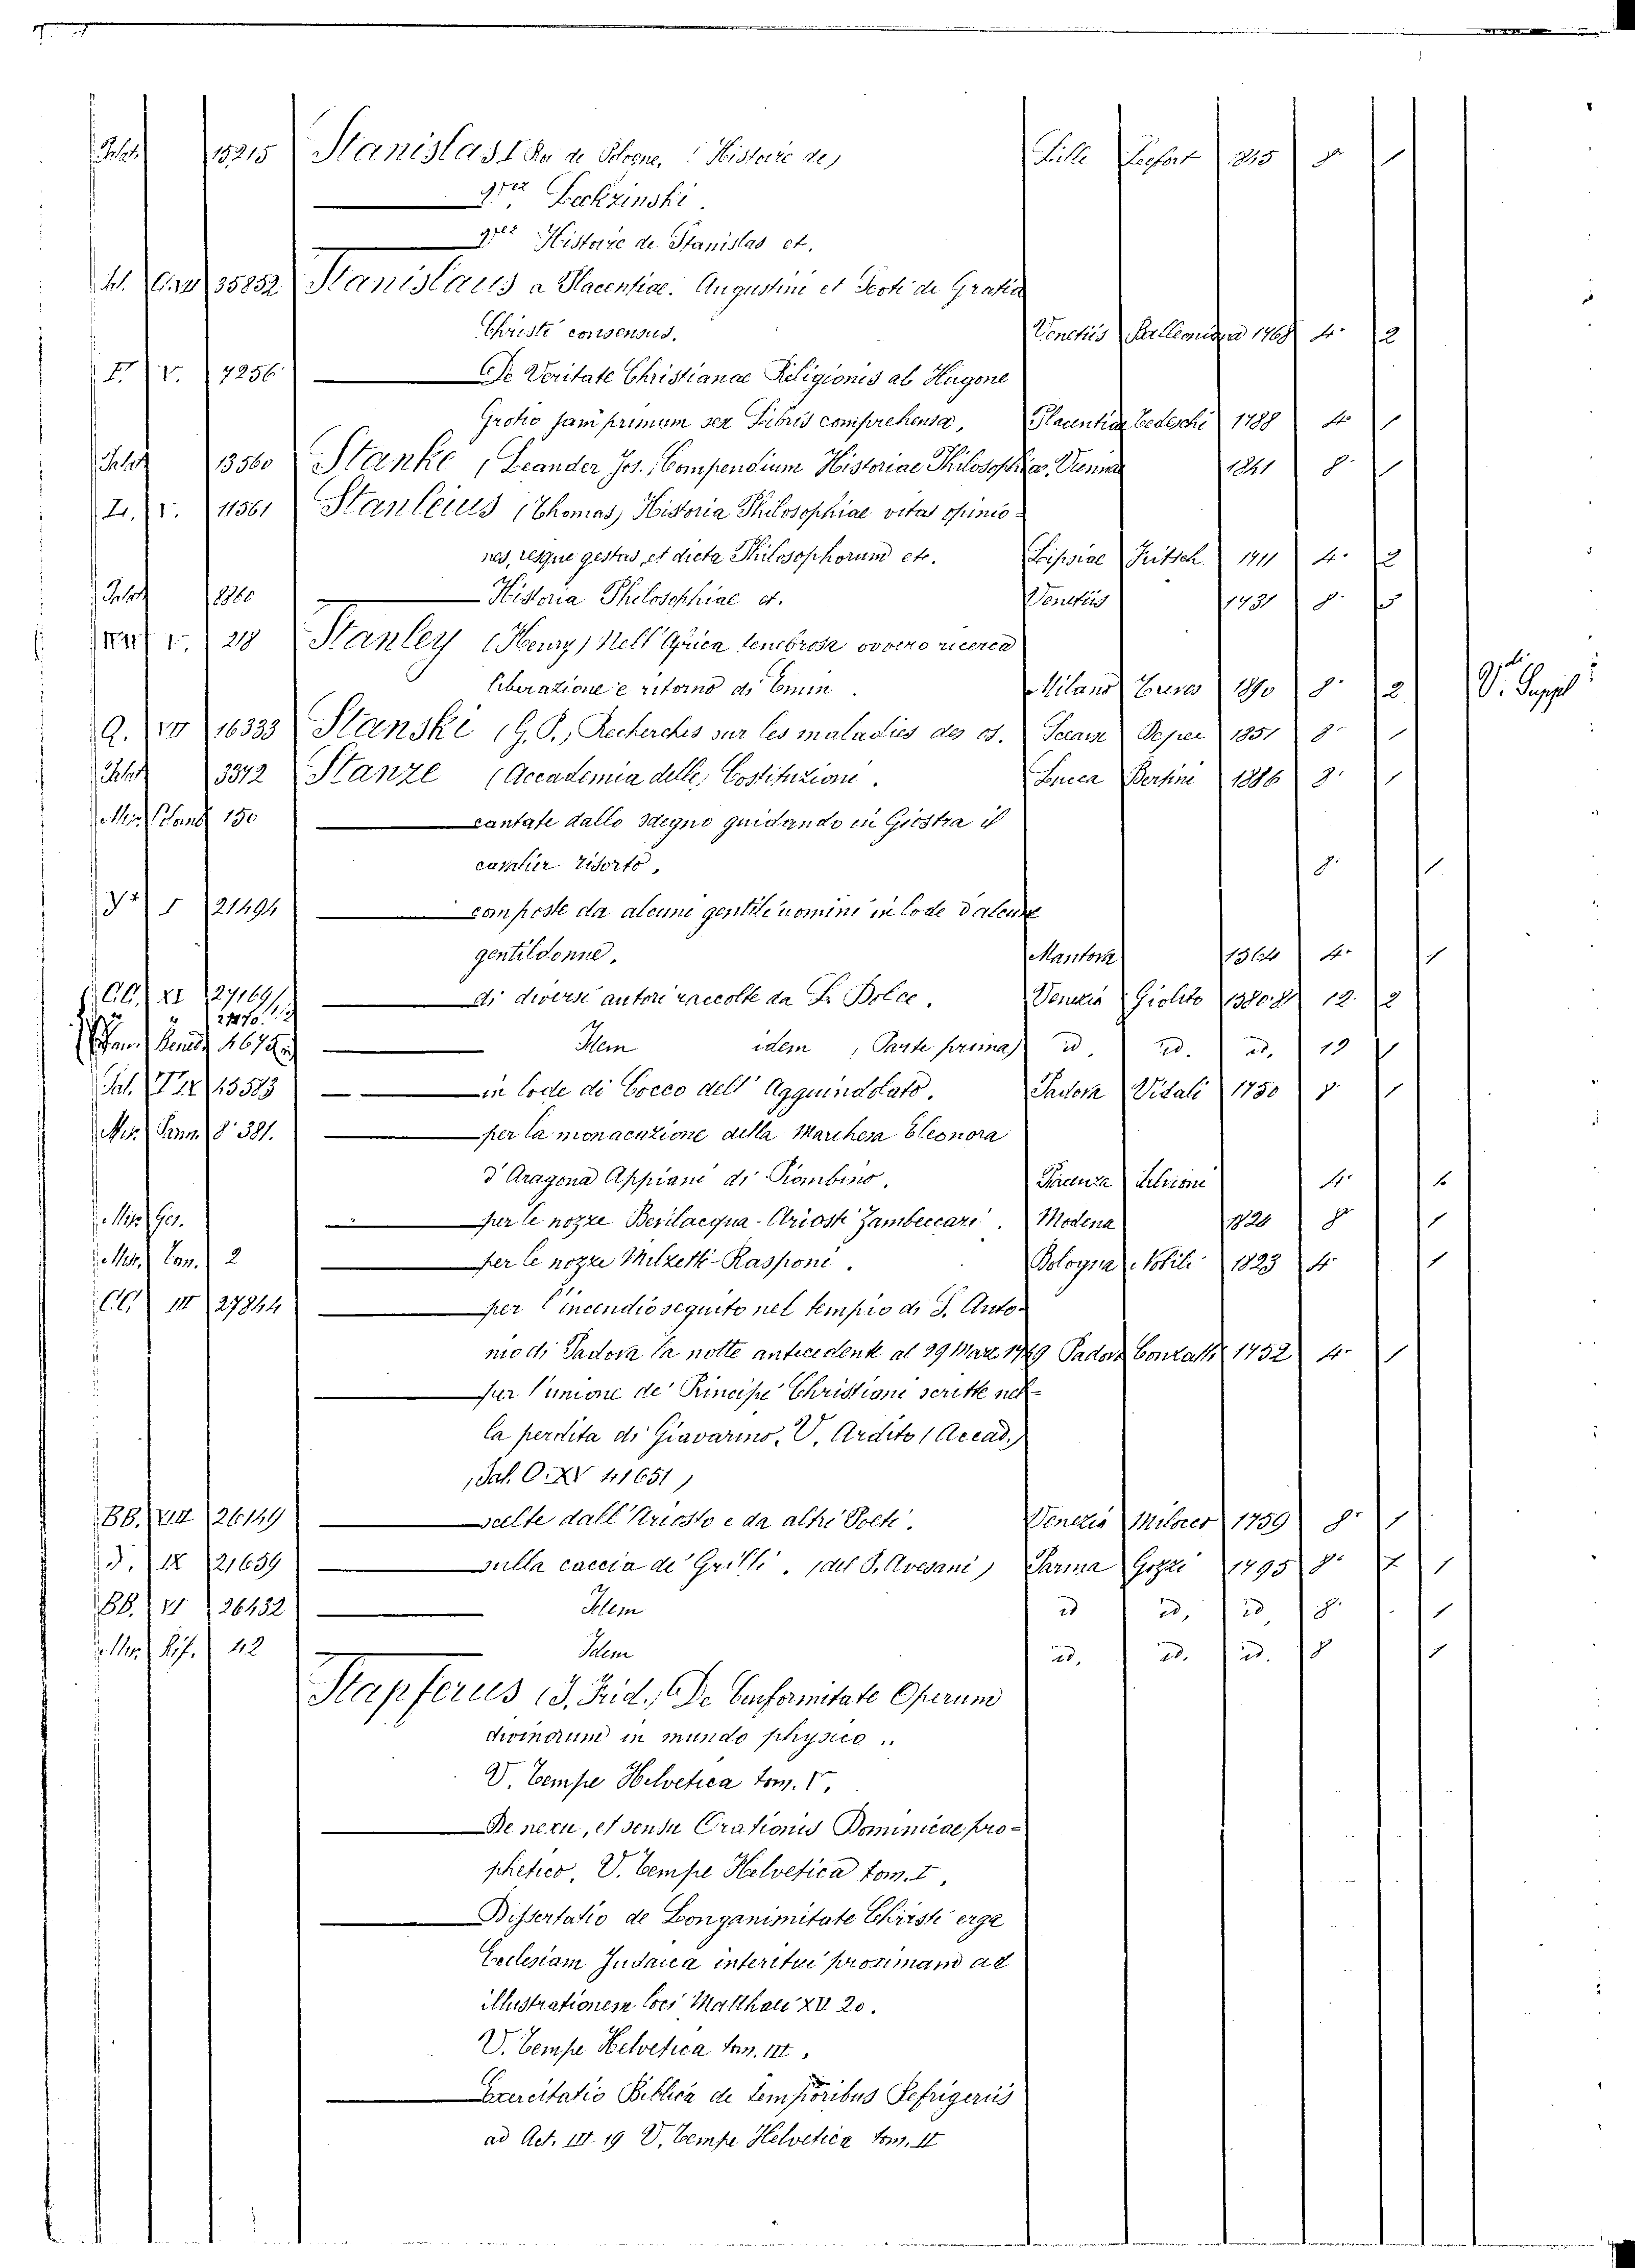 15215 Stanislas I Roi de Pologne, (Histoire de) Lille Lefort 1845 8 1
Leckzinski.
Histoire de Stanislas et.
35852 Stanislaus a Placentiae. Augustini et Scoti de Gratia
Christi consensus. Venetiis 1768 4º 2
F. V. 7256 De Veritate Christianae Religionis ab Hugone
Grotio jam primum sex Libris comprehensa, Placentiae Tedeschi 1788 4º 1
13560 Stanke (Leander Jos.) Compendium Historiae Philosophiae. Viennae 1841 8º 1
L. V. 11561 Stanleius (Thomas) Historia Philosophiae vitas opinio-
nes, resque gestas, et dicta Philosophorum etc. Lipsiae Fritsch 1711 4º 2
8860 Historia Philosophiae et. Venetiis 1731 8º
V. 218 Stanley (Henry) Nell'Africa tenebrosa ovvero ricerca
liberazione e ritorno di Emin. Milano Treves 1890 8º 2 V. Suppl
Q. VII 16333 Stanski (G. P.) Recherches sur les maladies des os. 1851 8º 1
3372 Stanze (Accademia delle) Costituzioni. Lucca Bertini 1886 8º 1
Mis. 150 cantate dallo Sdegno guidando in Giostra il
cavalier risorto, 8º 1
I 21494 composte da alcuni gentil'uomini in lode d'alcune
gentildonne, Mantova 1564 4º 1
CC. XI 27169 di diversi autori raccolte da L. Dolce. Venezia Giolito 12. 2
Idem idem (Parte prima) id. id. id. 12 1
Sal. 45583 in lode di Cocco dell'Agguindolato. Padova Vitali 1750 8 1
Mis. 8º 381. per la monacazione della Marchesa Eleonora
d'Aragona Appiani di Piombino. Piacenza 4º 1
Mis. Ger. per le nozze Bevilacqua-Ariosti Zambeccari. Modena 1820 8º 1
Mis. Can. 2 per le nozze Milzetti-Rasponi. Bologna Nobili 1823 4º 1
CC. III 27844 per l'incendio seguito nel tempio di S. Anto-
nio di Padova la notte antecedente al 29 Marz. 1749 Padova Conzatti 1752 4º 1
per l'unione de' Principi Christiani scritte nel-
la perdita di Giavarino. V. Ardito (Accad.)
(Sal. O. XV 41651)
BB. VIII 26149 scelte dall'Ariosto e da altri Poeti. Venezia Milocco 1759 8º 1
J. IX 21639 sulla caccia de' Grilli. (del P. Avesani) Parma Gozzi 1795 8º 1
BB. VI 26432 Idem id id, id 8º 1
Mis. Rif. 42 Idem id, id. id. 8 1
Stapferus (J. Frid.) De Conformitate Operum
divinorum in mundo physico..
V. Tempe Helvetica tom. V.
De nexu, et sensu Orationis Dominicae pro-
phetico, V. Tempe Helvetica tom. I,
Dissertatio de Longanimitate Christi erga
Ecclesiam Judaica interitui proximam ad
illustrationem loci Matthaei XII 20.
V. Tempe Helvetica tom. III,
Exercitatio Biblica de temporibus Refrigeriis
ad Act. III. 19 V. Tempe Helvetica tom. II